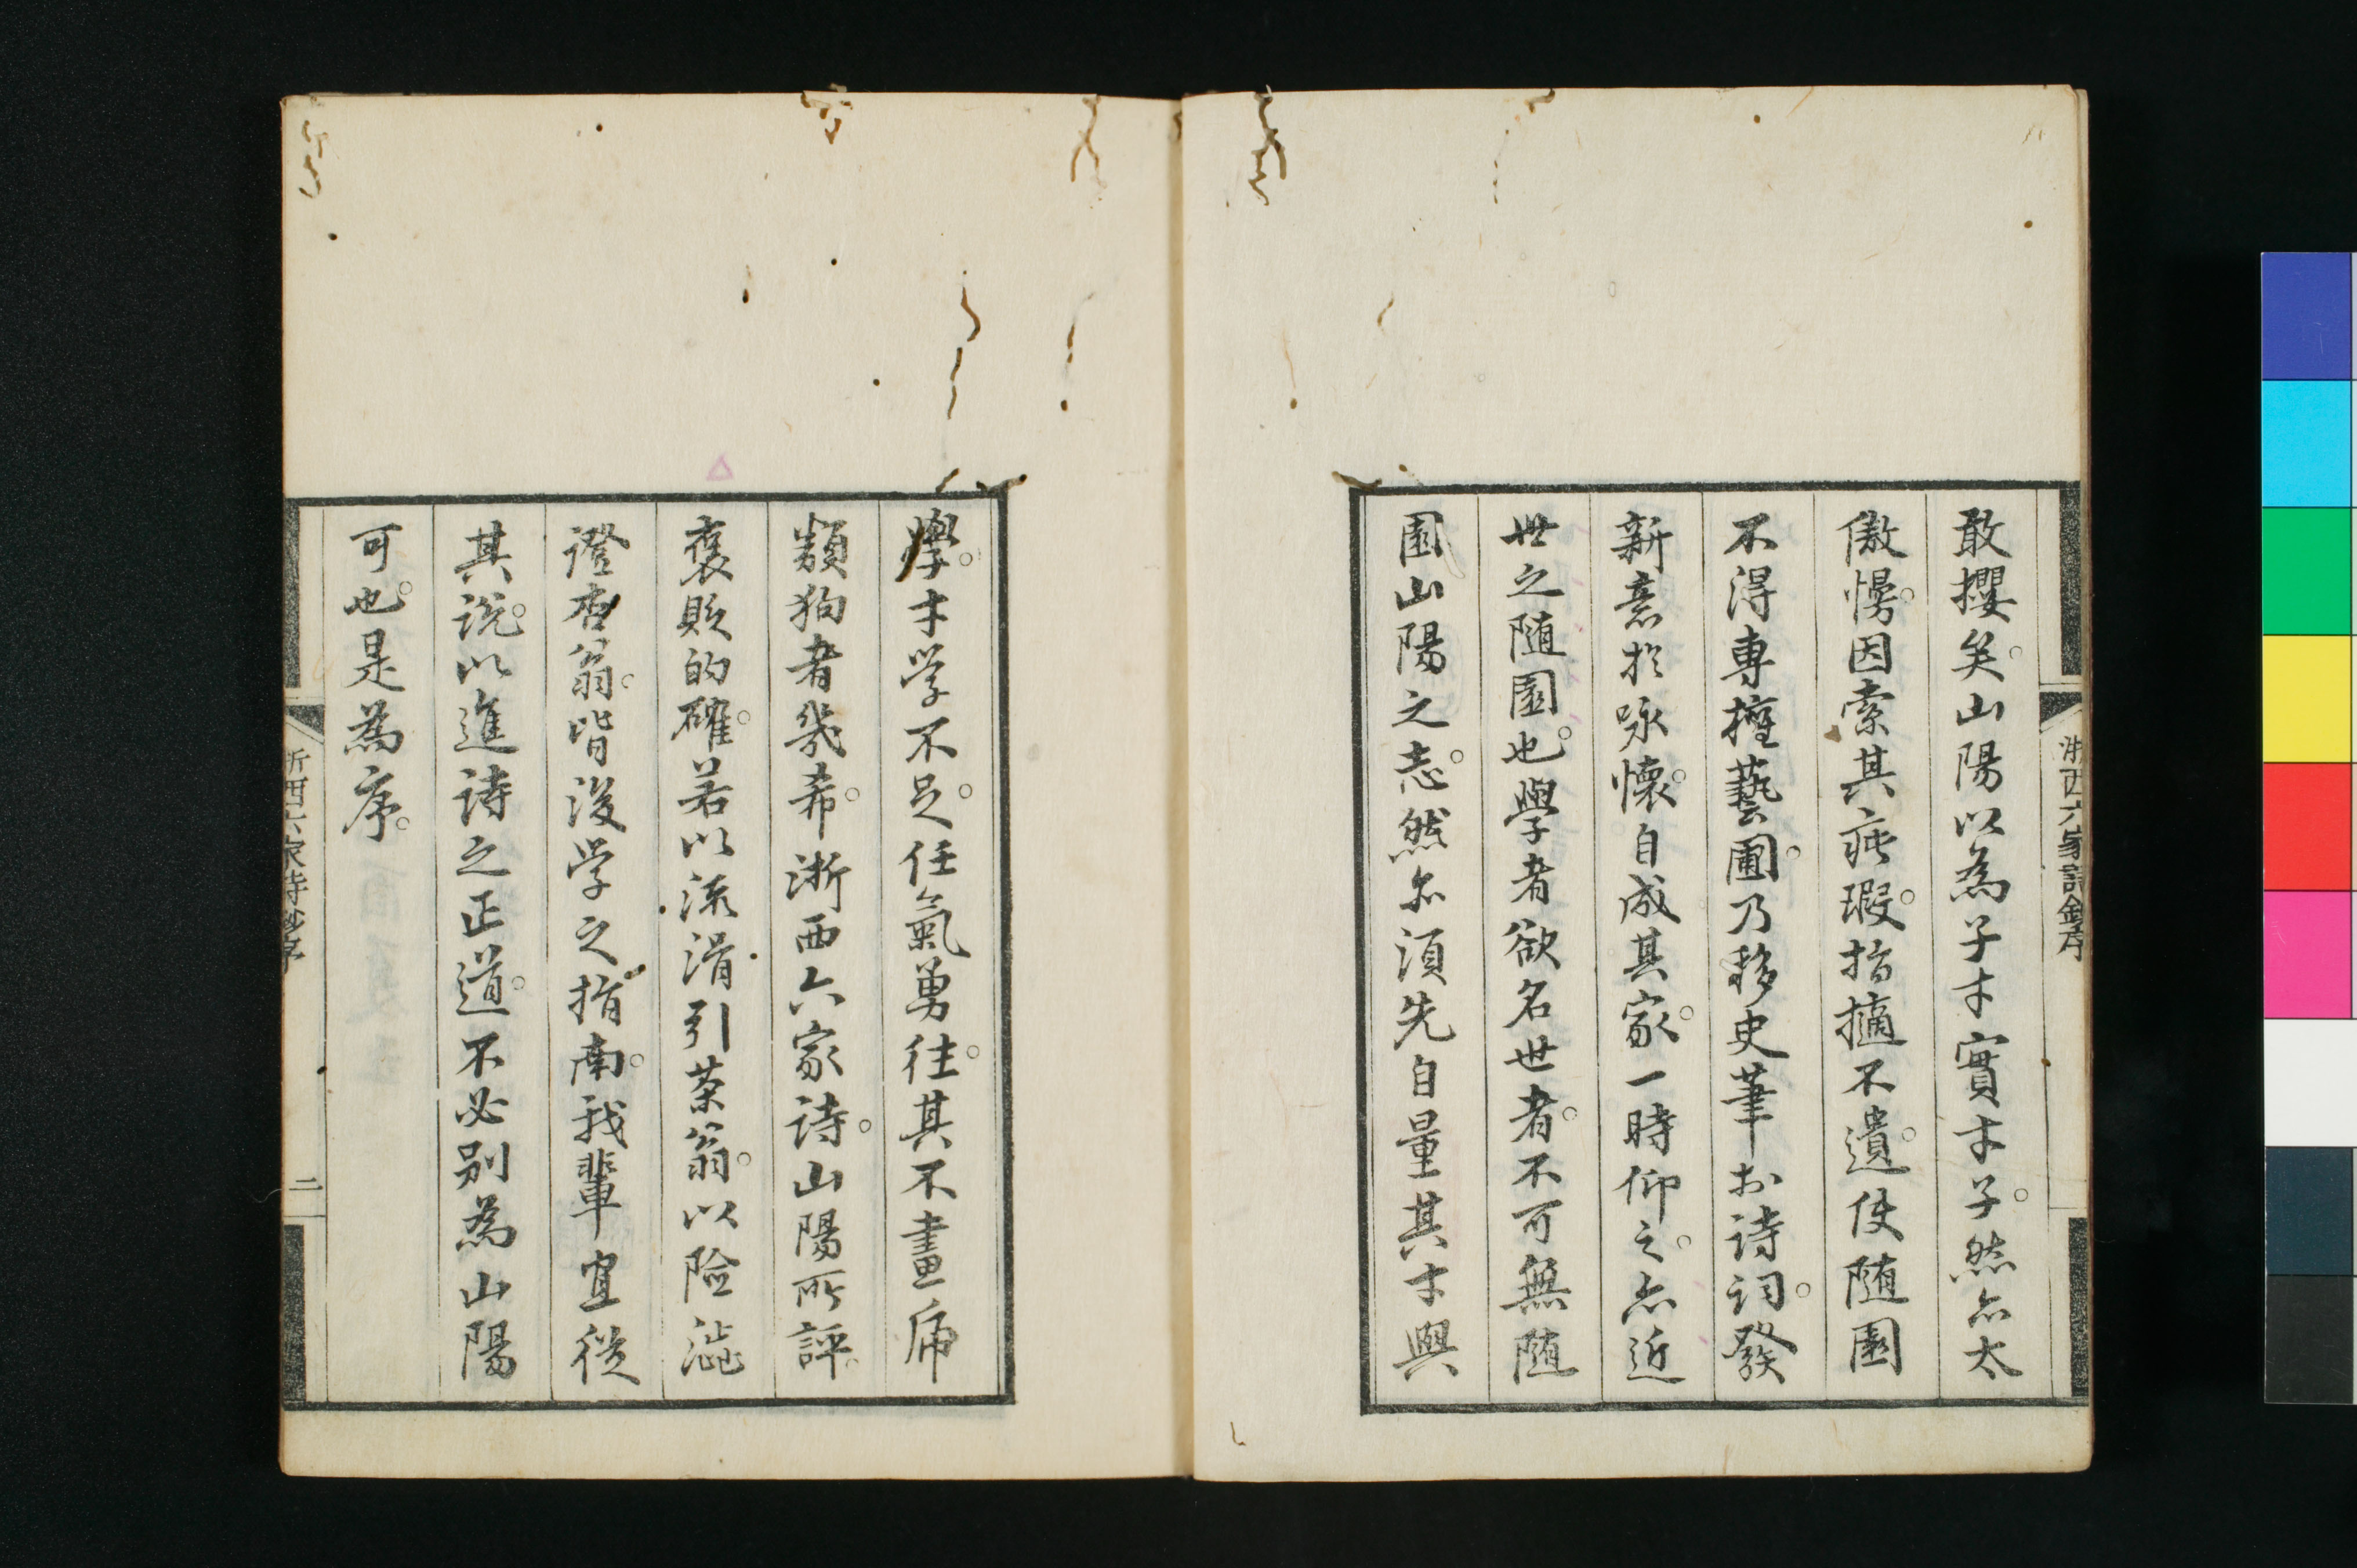 敢攖矣。山陽以為子才實才子。然亦太
傲慢。因索其疵瑕。指摘不遺。使随園
不得專擅藝圃。乃移史筆於詩詞。發
新意於咏懐。自成其家。一時仰之。亦近
世之随園也。學者欲名世者。不可無随
園山陽之志。然亦須先自量其才與
學。才学不足。任氣勇往。其不畫虎
類狗者幾希。浙西六家詩。山陽所評。
褒貶的確。若以流滑引茶翁。以険澁
證杏翁。皆後学之指南。我輩宜従
其説。以進詩之正道。不必別為山陽
可也。是為序。
浙西六家詩鈔序
二